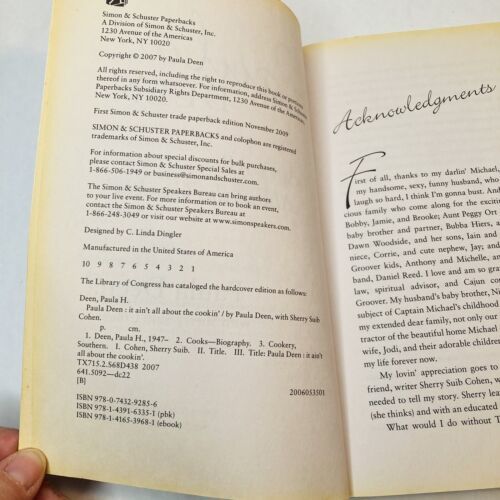 Simon & Schuster Paperbacks
A Division of Simon & Schuster, Inc.
1230 Avenue of the Americas
New York, NY 10020
Copyright © 2007 by Paula Deen
All rights reserved, including the right to reproduce this book or portions
thereof in any form whatsoever. For information, address Simon & Schuster
Paperbacks Subsidiary Rights Department, 1230 Avenue of the Americas,
New York, NY 10020.
First Simon & Schuster trade paperback edition November 2009
SIMON & SCHUSTER PAPERBACKS and colophon are registered
trademarks of Simon & Schuster, Inc.
For information about special discounts for bulk purchases,
please contact Simon & Schuster Special Sales at
1-866-506-1949 or business@simonandschuster.com.
The Simon & Schuster Speakers Bureau can bring authors
to your live event. For more information or to book an event,
contact the Simon & Schuster Speakers Bureau at
1-866-248-3049 or visit our website at www.simonspeakers.com.
Designed by C. Linda Dingler
Manufactured in the United States of America
10 9 8 7 6 5 4 3 2 1
The Library of Congress has cataloged the hardcover edition as follows:
Deen, Paula H.
Paula Deen : it ain't all about the cookin' / by Paula Deen, with Sherry Suib
Cohen.
p. cm.
1. Deen, Paula H., 1947– 2. Cooks—Biography. 3. Cookery,
Southern. I. Cohen, Sherry Suib. II. Title. III. Title: Paula Deen : it ain't
all about the cookin'.
TX715.2.S68D438 2007
641.5092—dc22
[B]
2006053501
ISBN 978-0-7432-9285-6
ISBN 978-1-4391-6335-1 (pbk)
ISBN 978-1-4165-3968-1 (ebook)
Acknowledgments
First of all, thanks to my darlin' Michael,
my handsome, sexy, funny husband, who
laugh so hard, I think I'm gonna bust. And
cious family who come along for the exciti
Bobby, Jamie, and Brooke; Aunt Peggy Ort
baby brother and partner, Bubba Hiers, an
Dawn Woodside, and her sons, Iain and
niece, Corrie, and cute nephew, Jay; and
Groover kids, Anthony and Michelle, and
band, Daniel Reed. I love and am so gra
law, spiritual advisor, and Cajun coo
Groover. My husband's baby brother, Ni
subject of Captain Michael's childhood
my extended dear family, not only our
tractor of the beautiful home Michael
wife, Jodi, and their adorable children
my life forever now.
My lovin' appreciation goes to
friend, writer Sherry Suib Cohen, w
needed to tell my story. Sherry lear
(she thinks) and with an educated
What would I do without T